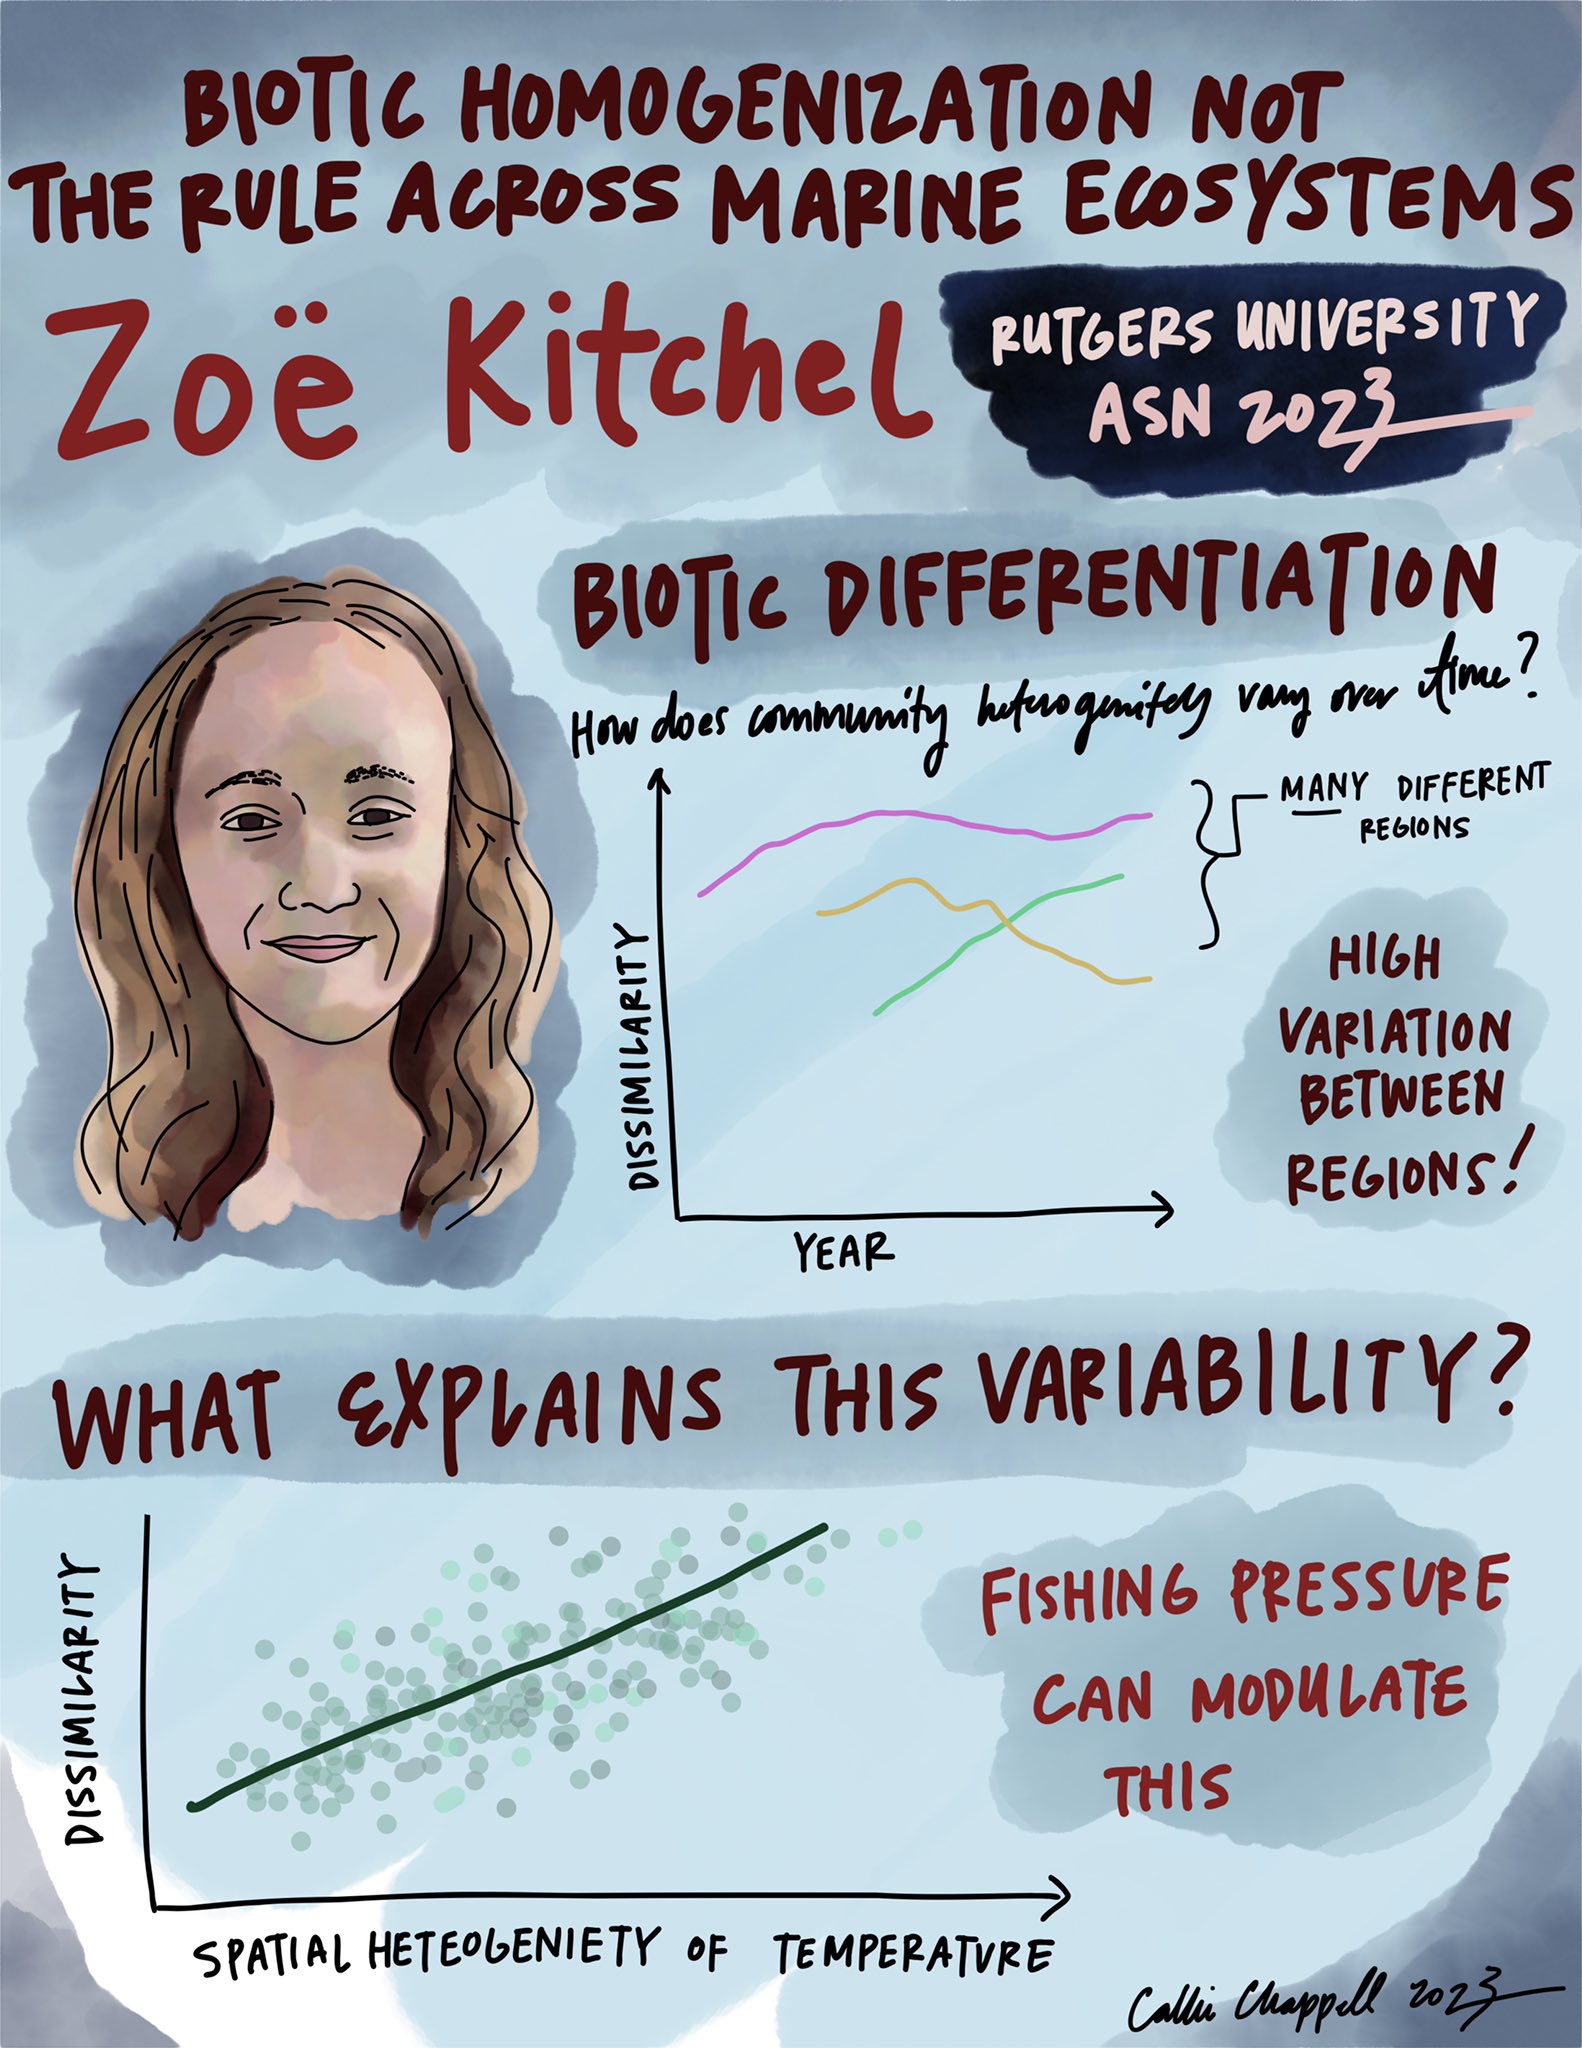 BIOTIC HOMOGENIZATION NOT
THE RULE ACROSS MARINE ECOSYSTEMS
Zoë Kitchel
RUTGERS UNIVERSITY
ASN 2023
BIOTIC DIFFERENTIATION
How does community heterogenitey vary over time?
MANY DIFFERENT
REGIONS
DISSIMILARITY
YEAR
HIGH
VARIATION
BETWEEN
REGIONS!
WHAT EXPLAINS THIS VARIABILITY?
DISSIMILARITY
SPATIAL HETEOGENIETY OF TEMPERATURE
FISHING PRESSURE
CAN MODULATE
THIS
Callie Chappell 2023